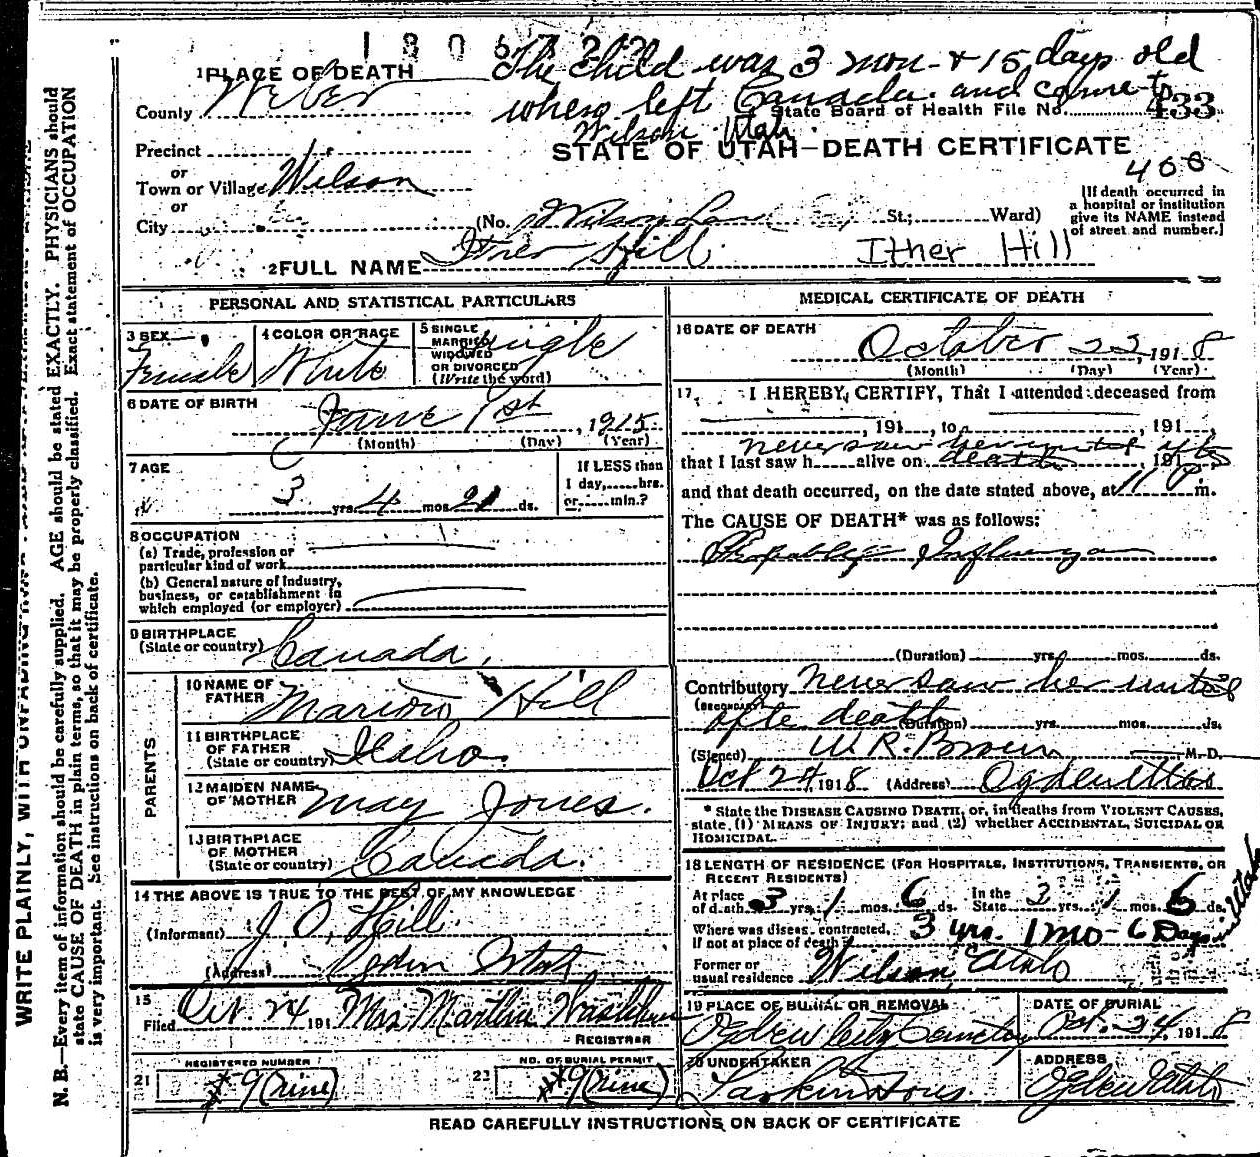 The child was 3 mon & 15 days old
when left Canada and came to
Wilson Utah.
1 PLACE OF DEATH
County Weber
State Board of Health File No. 433
Precinct
STATE OF UTAH—DEATH CERTIFICATE
or
Town or Village Wilson
or
City
(No. Wilson Lane St.; Ward)
[If death occurred in
a hospital or institution
give its NAME instead
of street and number.]
2 FULL NAME Ither Hill Ither Hill
PERSONAL AND STATISTICAL PARTICULARS
3 SEX Female
4 COLOR OR RACE White
5 SINGLE
MARRIED
WIDOWED
OR DIVORCED
(Write the word)
Single
6 DATE OF BIRTH
June 1st, 1915
(Month) (Day) (Year)
7 AGE
3 yrs. 4 mos. 21 ds.
If LESS than
1 day, hrs.
or min.?
8 OCCUPATION
(a) Trade, profession or
particular kind of work
(b) General nature of Industry,
business, or establishment in
which employed (or employer)
9 BIRTHPLACE
(State or country) Canada.
PARENTS
10 NAME OF
FATHER Marion Hill
11 BIRTHPLACE
OF FATHER
(State or country) Idaho.
12 MAIDEN NAME
OF MOTHER May Jones.
13 BIRTHPLACE
OF MOTHER
(State or country) Canada.
14 THE ABOVE IS TRUE TO THE BEST OF MY KNOWLEDGE
(Informant) J. O. Hill
(Address) Ogden Utah
15
Filed Oct 24 191 Mrs Martha
REGISTRAR
21 REGISTERED NUMBER
9 (nine)
22 NO. OF BURIAL PERMIT
9 (nine)
MEDICAL CERTIFICATE OF DEATH
16 DATE OF DEATH
October 22, 1918
(Month) (Day) (Year)
17 I HEREBY CERTIFY, That I attended deceased from
, 191 , to , 191 ,
never saw her until after
that I last saw h alive on death , 191
and that death occurred, on the date stated above, at 11 P. m.
The CAUSE OF DEATH* was as follows:
Probably Influenza
(Duration) yrs. mos. ds.
Contributory Never saw her until
(SECONDARY)
after death (Duration) yrs. mos. ds.
(Signed) W. R. Brown M.D.
Oct 24 1918 (Address) Ogden Utah
* State the DISEASE CAUSING DEATH, or, in deaths from VIOLENT CAUSES,
state (1) MEANS OF INJURY; and (2) whether ACCIDENTAL, SUICIDAL OR
HOMICIDAL.
18 LENGTH OF RESIDENCE (FOR HOSPITALS, INSTITUTIONS, TRANSIENTS, OR
RECENT RESIDENTS)
At place
of death 3 yrs. 1 mos. 6 ds.
In the
State 3 yrs. 1 mos. 6 ds.
Where was diseas. contracted,
If not at place of death?
3 yrs. 1 mo- 6 Days in Utah
Former or
usual residence Wilson Utah
19 PLACE OF BURIAL OR REMOVAL
Ogden City Cemetery
DATE OF BURIAL
Oct. 24, 1918
20 UNDERTAKER
Larkin & Sons.
ADDRESS
Ogden Utah
READ CAREFULLY INSTRUCTIONS ON BACK OF CERTIFICATE
N. B.—Every item of information should be carefully supplied. AGE should be stated EXACTLY. PHYSICIANS should
state CAUSE OF DEATH in plain terms, so that it may be properly classified. Exact statement of OCCUPATION
is very important. See instructions on back of certificate.